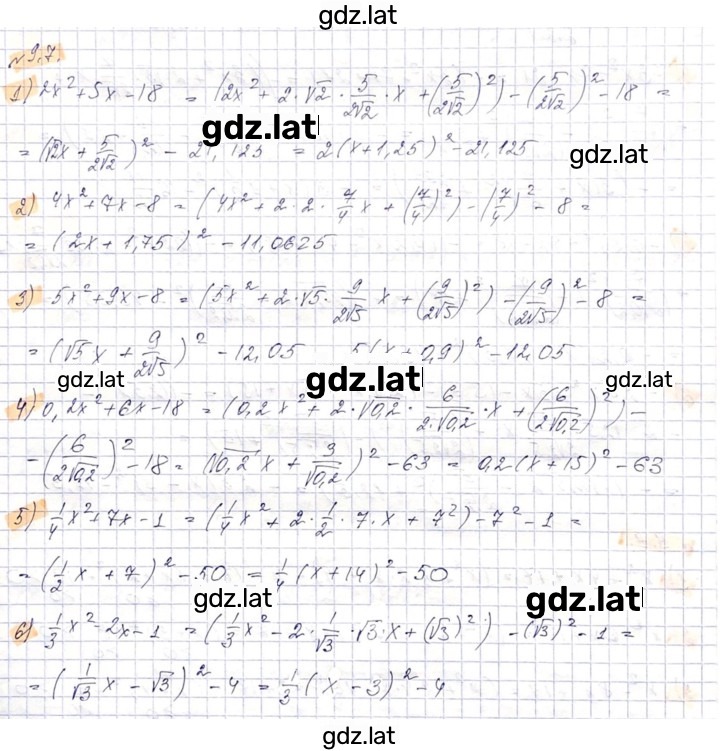 gdz.lat
№9.7.
1) 2x² + 5x - 18 = (2x² + 2 · √2 · 5/2√2 · x + (5/2√2)²) - (5/2√2)² - 18 =
gdz.lat
= (√2x + 5/2√2)² - 21,125 = 2(x + 1,25)² - 21,125
gdz.lat
2) 4x² + 7x - 8 = (4x² + 2 · 2 · 7/4 x + (7/4)²) - (7/4)² - 8 =
= (2x + 1,75)² - 11,0625
3) 5x² + 9x - 8 = (5x² + 2 · √5 · 9/2√5 x + (9/2√5)²) - (9/2√5)² - 8 =
= (√5x + 9/2√5)² - 12,05 5(x + 0,9)² - 12,05
gdz.lat gdz.lat gdz.lat
4) 0,2x² + 6x - 18 = (0,2x² + 2 · √0,2 · 6/2·√0,2 · x + (6/2√0,2)²) -
- (6/2√0,2)² - 18 = (√0,2 x + 3/√0,2)² - 63 = 0,2(x + 15)² - 63
5) 1/4 x² + 7x - 1 = (1/4 x² + 2 · 1/2 · 7 · x + 7²) - 7² - 1 =
= (1/2 x + 7)² - 50 = 1/4 (x + 14)² - 50
gdz.lat gdz.lat
6) 1/3 x² - 2x - 1 = (1/3 x² - 2 · 1/√3 · √3 · x + (√3)²) - (√3)² - 1 =
= (1/√3 x - √3)² - 4 = 1/3 (x - 3)² - 4
gdz.lat